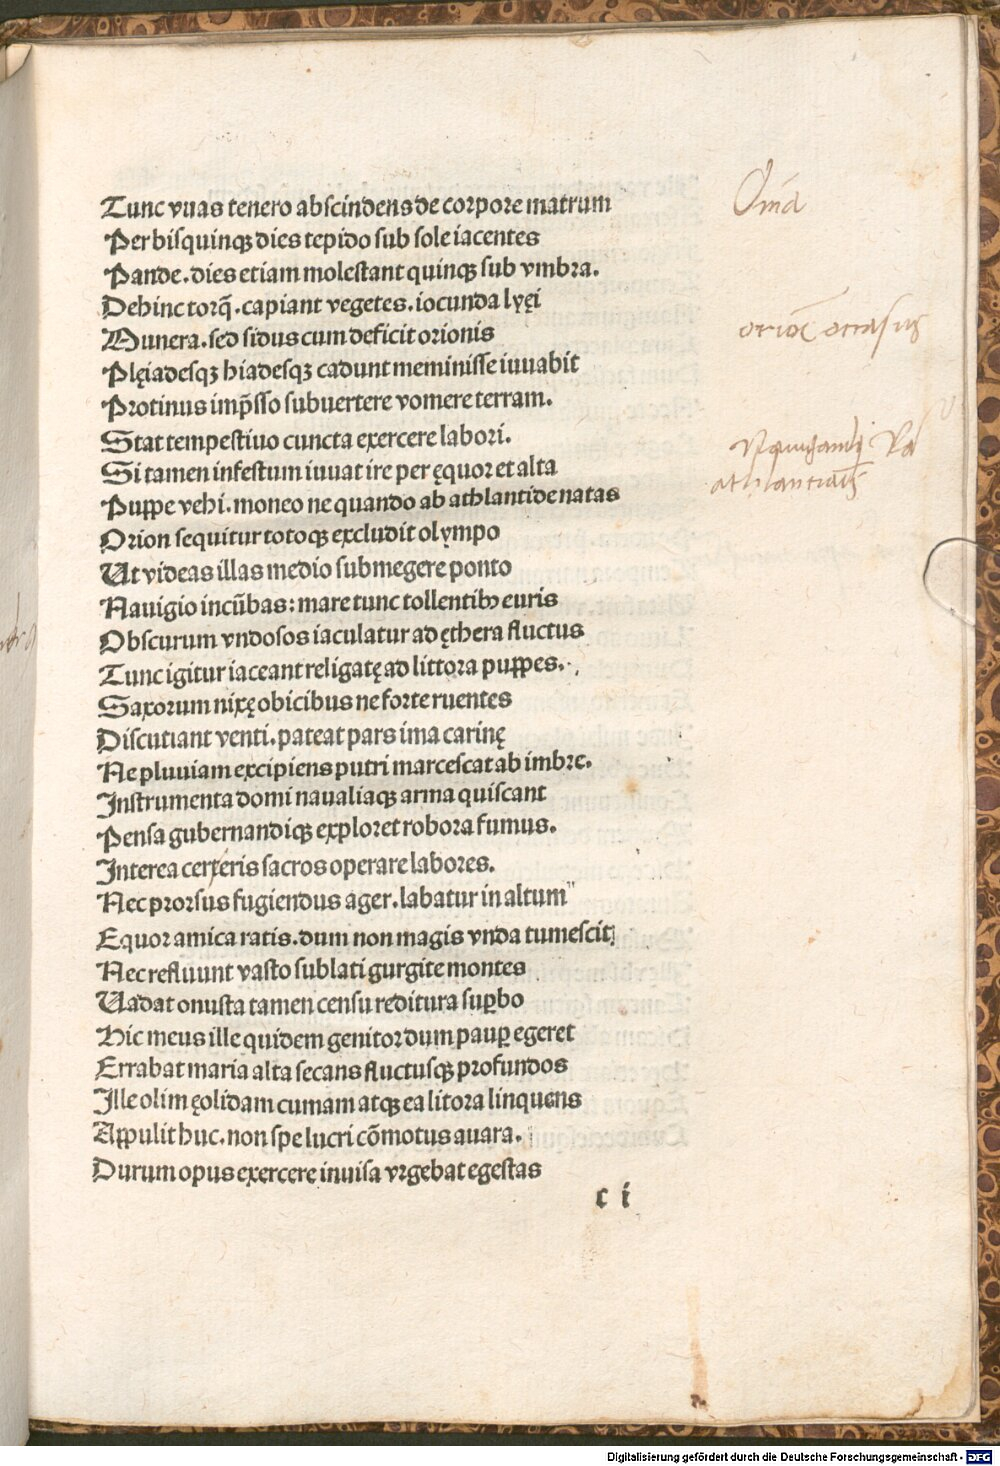 Tunc vuas tenero abscindens de corpore matrum
Per bis quinqꝫ dies tepido sub sole iacentes
Pande. dies etiam molestant quinqꝫ sub vmbra.
Dehinc torq̃. capiant vegetes. iocunda lyęi
Munera. sed sidus cum deficit orionis
Plęiadesqꝫ hiadesqꝫ cadunt meminisse iuuabit
Protinus imp̃sso subuertere vomere terram.
Stat tempestiuo cuncta exercere labori.
Si tamen infestum iuuat ire per ęquor et alta
Puppe vehi. moneo ne quando ab athlantide natas
Orion sequitur totoqꝫ excludit olympo
Ut videas illas medio submegere ponto
Nauigio incũbas: mare tunc tollentibꝰ euris
Obscurum vndosos iaculatur ad ęthera fluctus
Tunc igitur iaceant religatę ad littora puppes.
Saxorum nixę obicibus ne forte ruentes
Discutiant venti. pateat pars ima carinę
Ne pluuiam excipiens putri marcescat ab imbre.
Instrumenta domi naualiaqꝫ arma quiscant
Pensa gubernandiqꝫ exploret robora fumus.
Interea certeris sacros operare labores.
Nec prorsus fugiendus ager. labatur in altum
Equor amica ratis. dum non magis vnda tumescit
Nec refluunt vasto sublati gurgite montes
Uadat onusta tamen censu reditura suꝑbo
Hic meus ille quidem genitor dum pauꝑ egeret
Errabat maria alta secans fluctusqꝫ profundos
Ille olim ęolidam cumam atqꝫ ea litora linquens
Appulit huc. non spe lucri cõmotus auara.
Durum opus exercere inuisa vrgebat egestas
c i
occasus
Digitalisierung gefördert durch die Deutsche Forschungsgemeinschaft - DFG